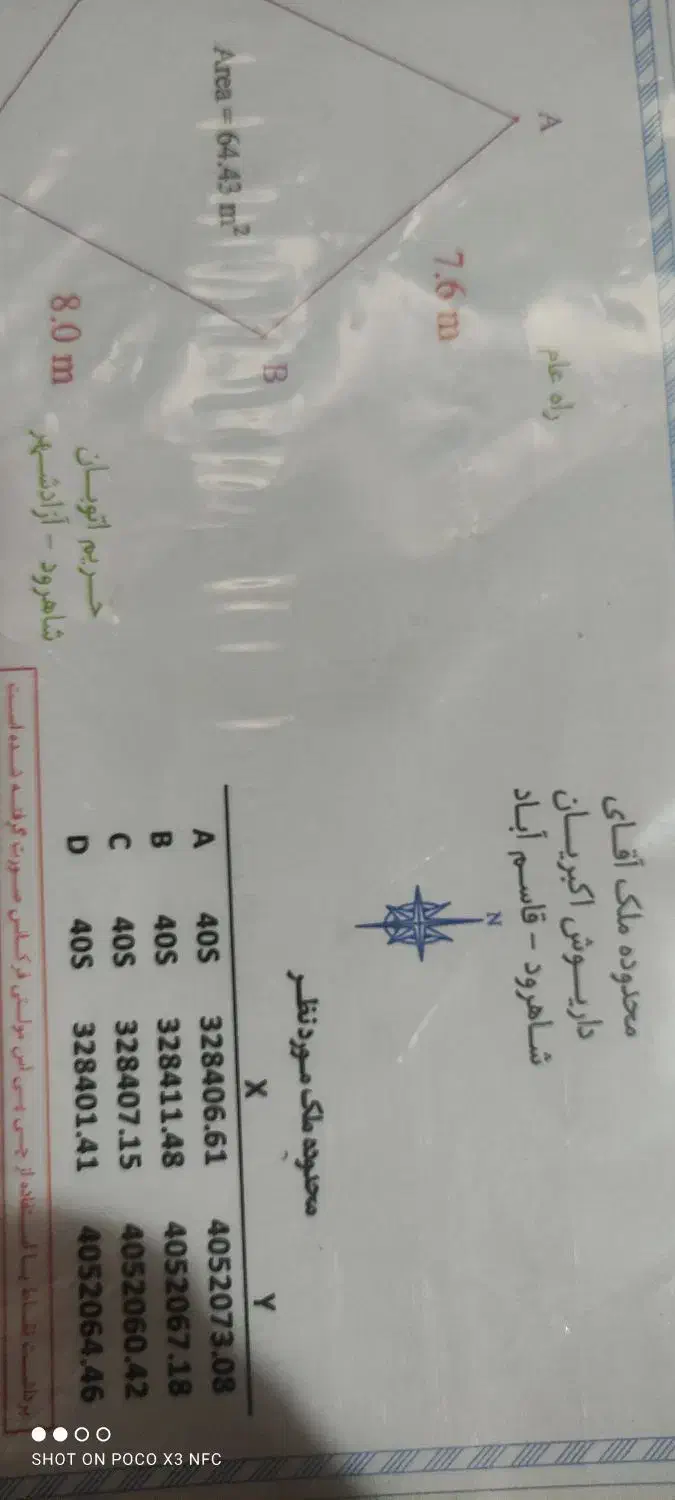 محدوده ملک آقای
داریوش اکبریان
شاهرود - قاسم آباد
N
A
راه عام
7.6 m
B
Area = 64.43 m²
8.0 m
حریم اتوبان
شاهرود - آزادشهر
محدوده ملک مورد نظر
X Y
A 40S 328406.61 4052073.08
B 40S 328411.48 4052067.18
C 40S 328407.15 4052060.42
D 40S 328401.41 4052064.46
برداشت نقاط با استفاده از جی پی اس مولتی فرکانس صورت گرفته شده است
SHOT ON POCO X3 NFC